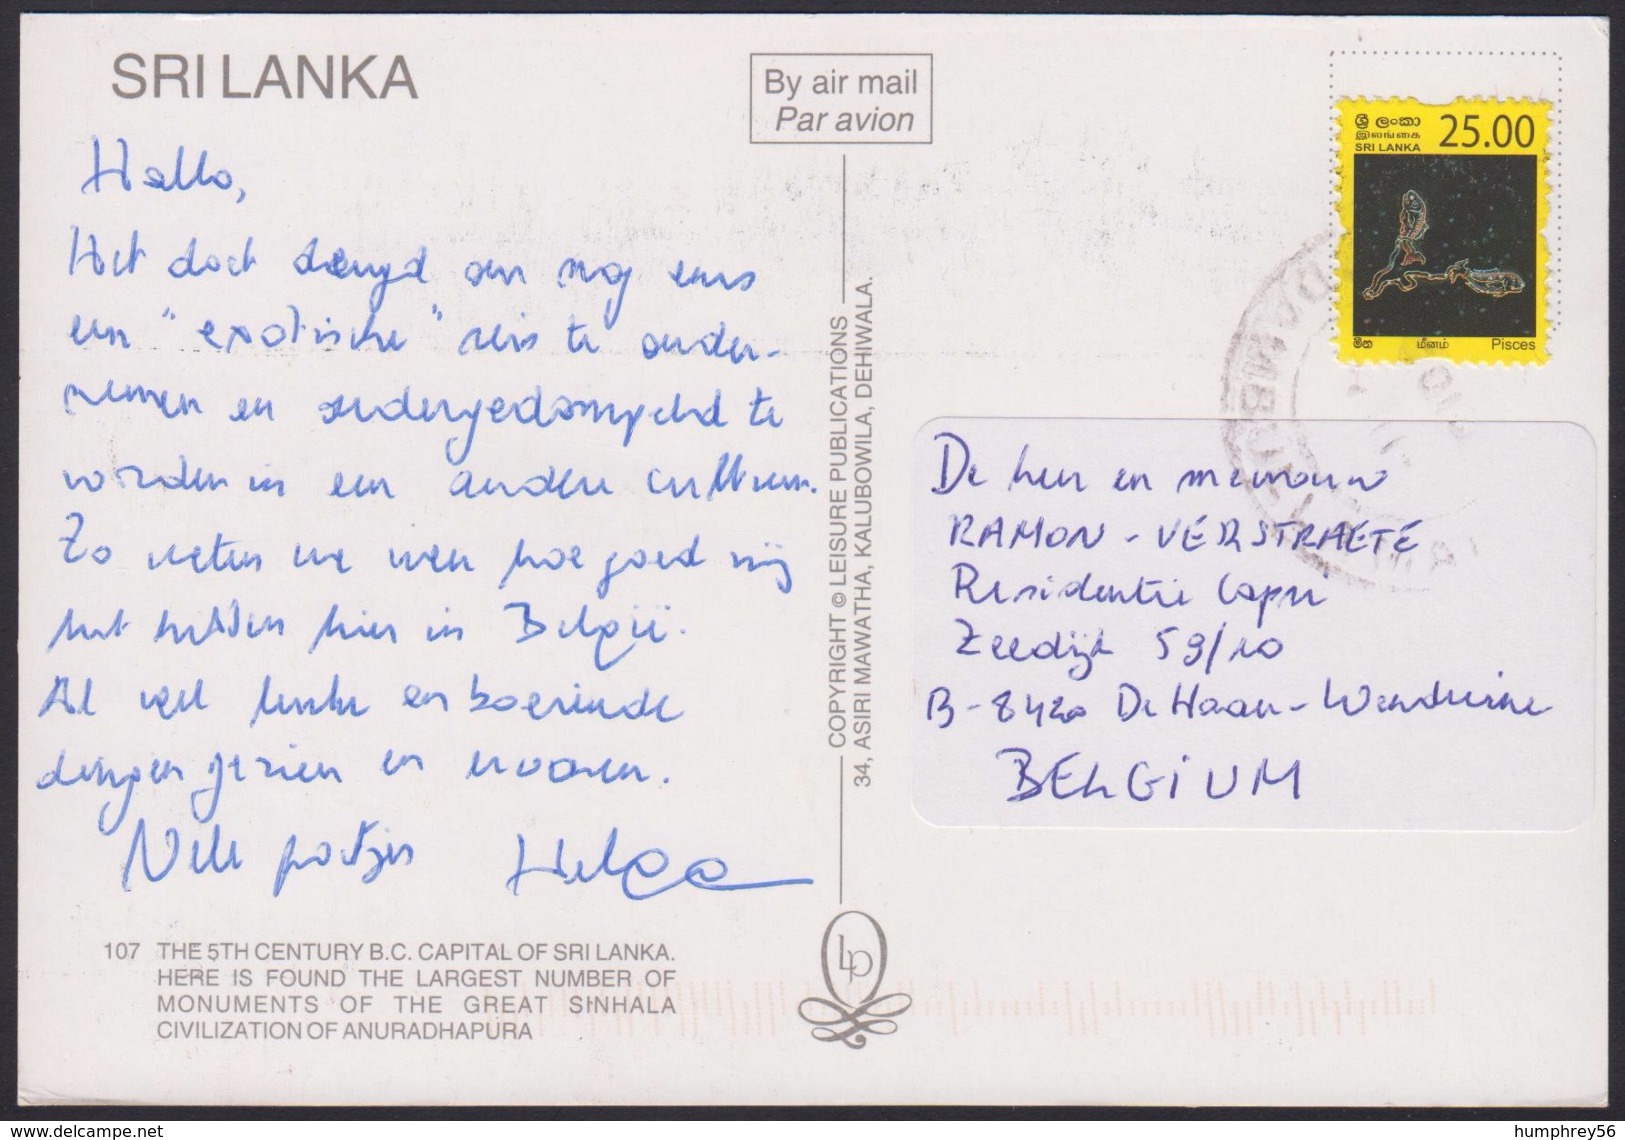 SRI LANKA
By air mail
Par avion
ශ්‍රී ලංකා
இலங்கை
SRI LANKA
25.00
මීන மீனம் Pisces
Hallo,
Het doet deugd om nog eens
een "exotische" reis te onder-
nemen en ondergedompeld te
worden in een andere cultuur.
Zo weten we weer hoe goed wij
het hebben hier in België.
Al veel leuke en boeiende
dingen gezien en ervaren.
Vele groetjes Helga
COPYRIGHT © LEISURE PUBLICATIONS
34, ASIRI MAWATHA, KALUBOWILA, DEHIWALA.
De heer en mevrouw
RAMON - VERSTRAETE
Residentie Capri
Zeedijk 59/10
B-8420 De Haan-Wenduine
BELGIUM
107 THE 5TH CENTURY B.C. CAPITAL OF SRI LANKA.
HERE IS FOUND THE LARGEST NUMBER OF
MONUMENTS OF THE GREAT SINHALA
CIVILIZATION OF ANURADHAPURA
LP
delcampe.net
humphrey56